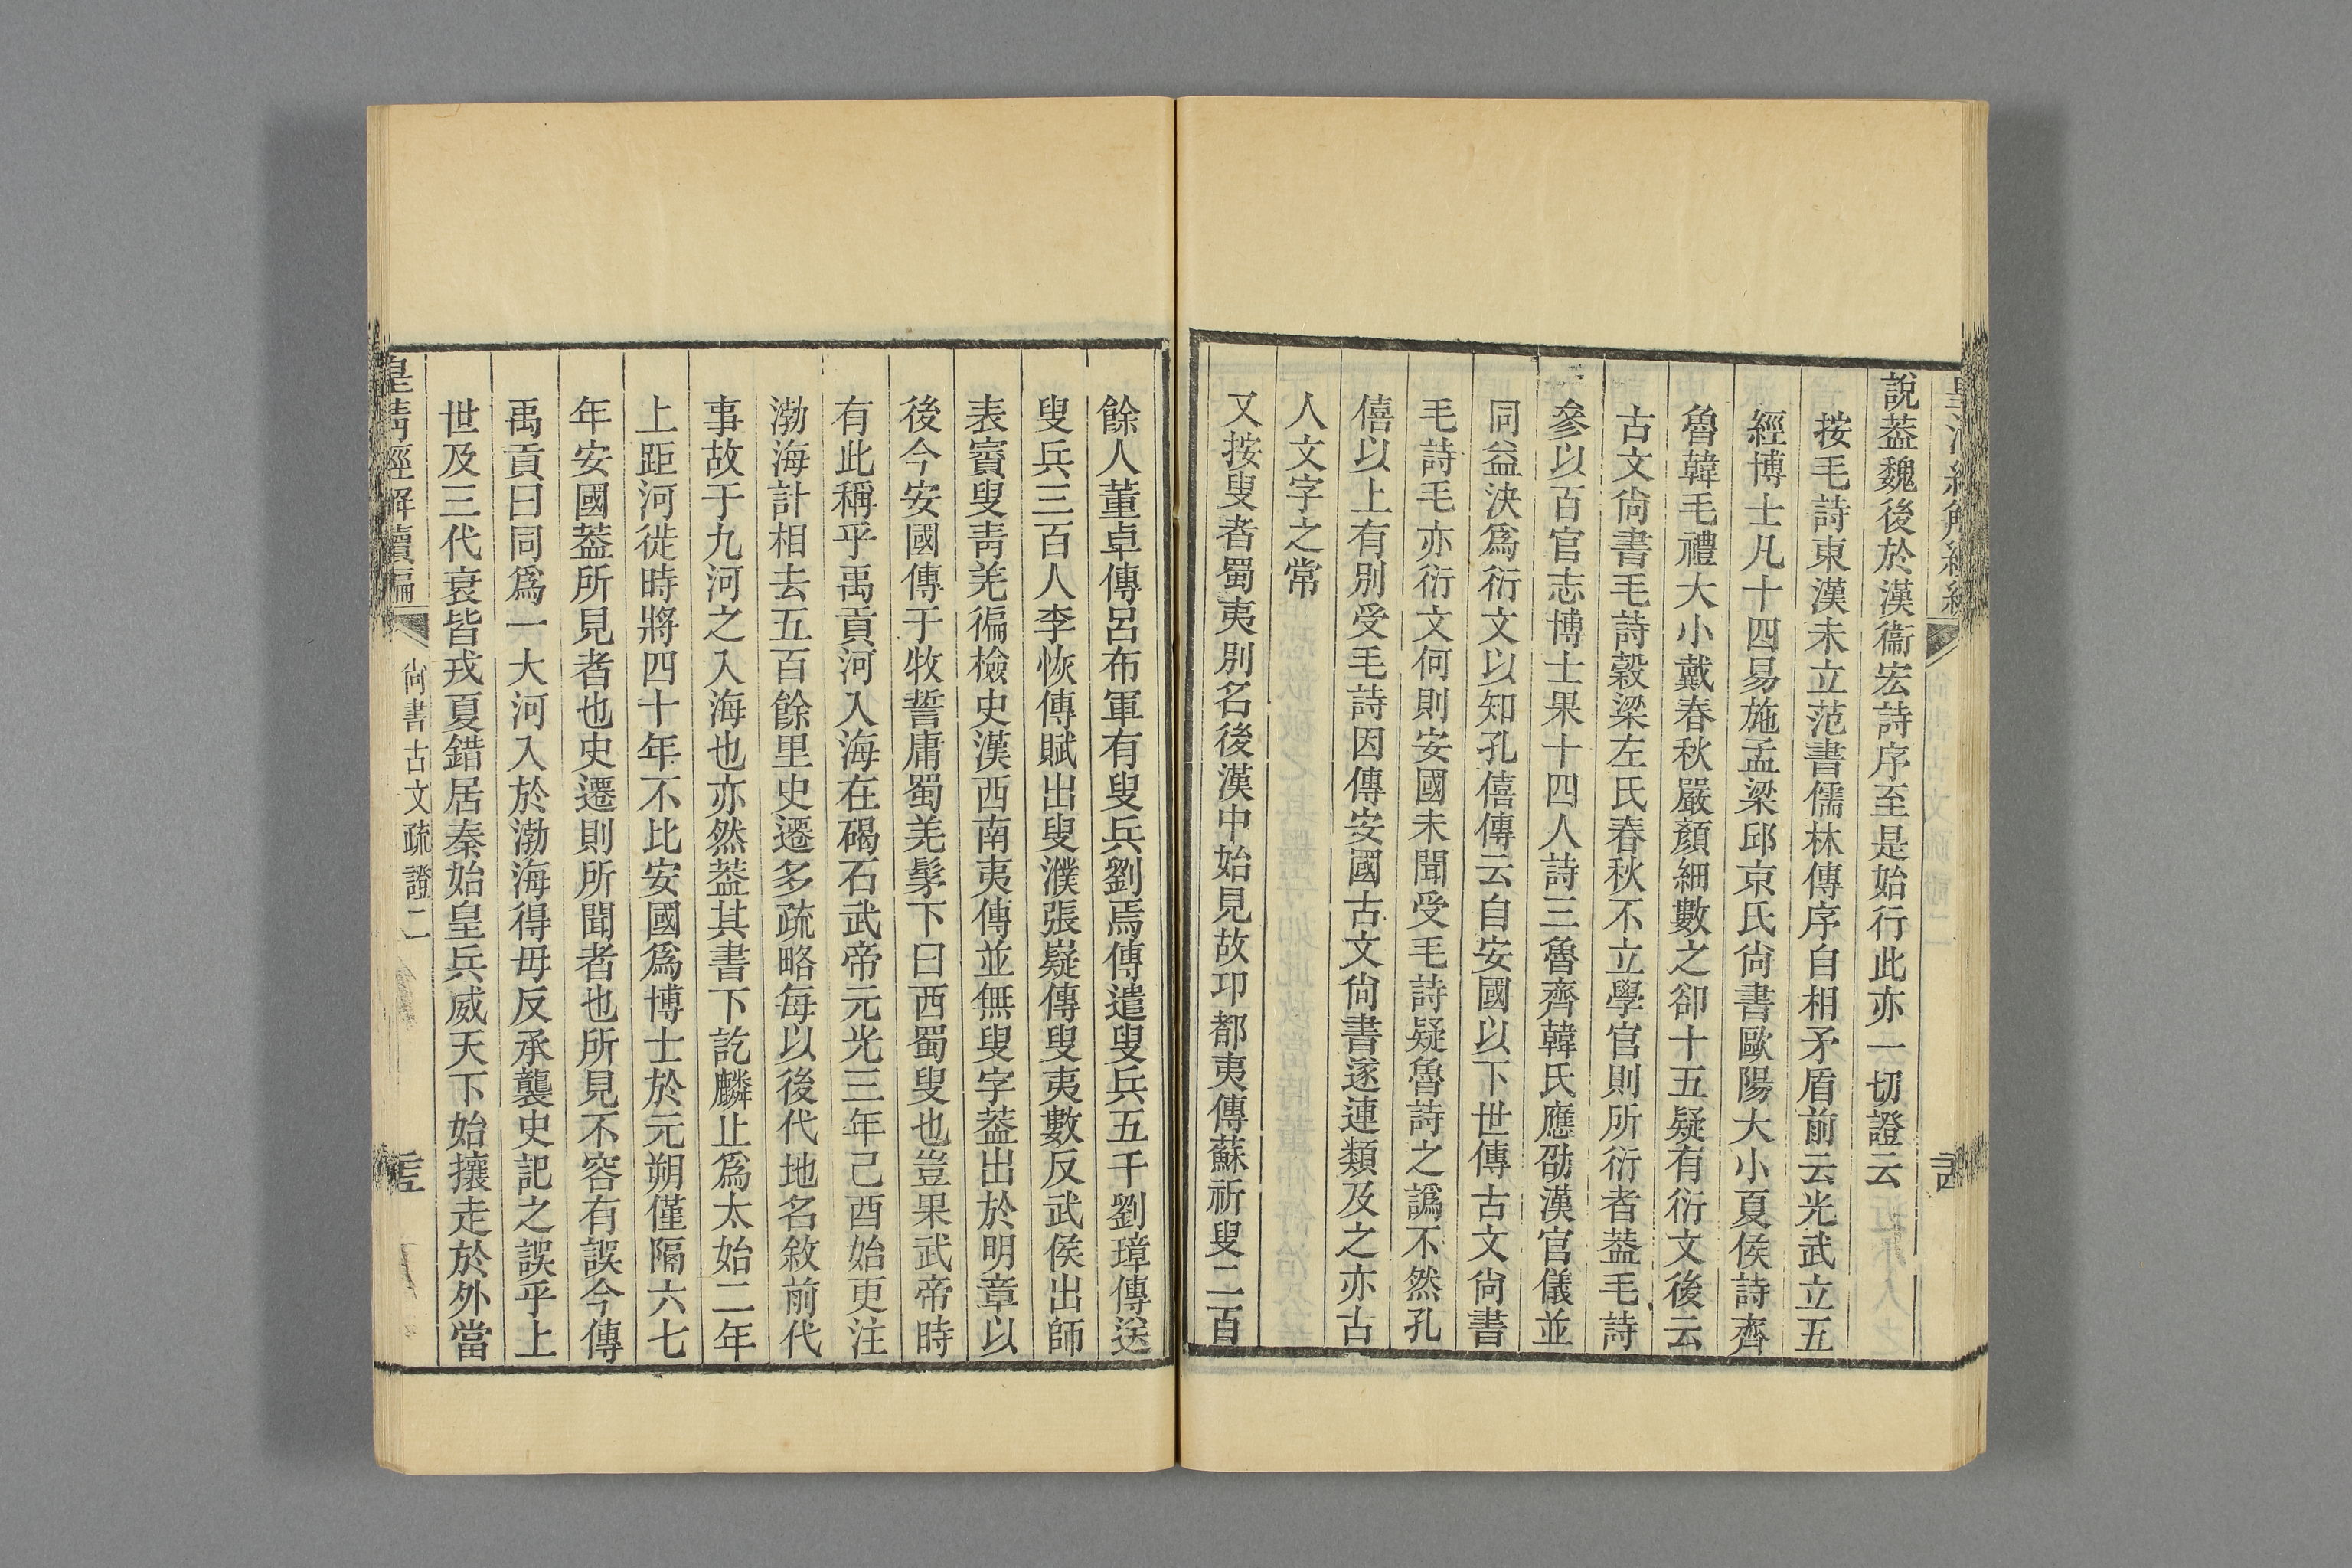 說葢魏後於漢衞宏詩序至是始行此亦一切證云
按毛詩東漢未立范書儒林傳序自相矛盾前云光武立五
經博士凡十四易施孟梁邱京氏尙書歐陽大小夏侯詩齊
魯韓毛禮大小戴春秋嚴顏細數之卻十五疑有衍文後云
古文尙書毛詩穀梁左氏春秋不立學官則所衍者葢毛詩
參以百官志博士果十四人詩三魯齊韓氏應劭漢官儀並
同益決爲衍文以知孔僖傳云自安國以下世傳古文尙書
毛詩毛亦衍文何則安國未聞受毛詩疑魯詩之譌不然孔
僖以上有別受毛詩因傳安國古文尙書遂連類及之亦古
人文字之常
又按叟者蜀夷別名後漢中始見故卭都夷傳蘇祈叟二百
餘人董卓傳呂布軍有叟兵劉焉傳遣叟兵五千劉璋傳送
叟兵三百人李恢傳賦出叟濮張嶷傳叟夷數反武侯出師
表竇叟靑羌徧檢史漢西南夷傳並無叟字葢出於明章以
後今安國傳于牧誓庸蜀羌髳下曰西蜀叟也豈果武帝時
有此稱乎禹貢河入海在碣石武帝元光三年己酉始更注
渤海計相去五百餘里史遷多疏略每以後代地名敘前代
事故于九河之入海也亦然葢其書下訖麟止爲太始二年
上距河徙時將四十年不比安國爲博士於元朔僅隔六七
年安國葢所見者也史遷則所聞者也所見不容有誤今傳
禹貢曰同爲一大河入於渤海得毋反承襲史記之誤乎上
世及三代衰皆戎夏錯居秦始皇兵威天下始攘走於外當
皇淸經解續編
尙書古文疏證二